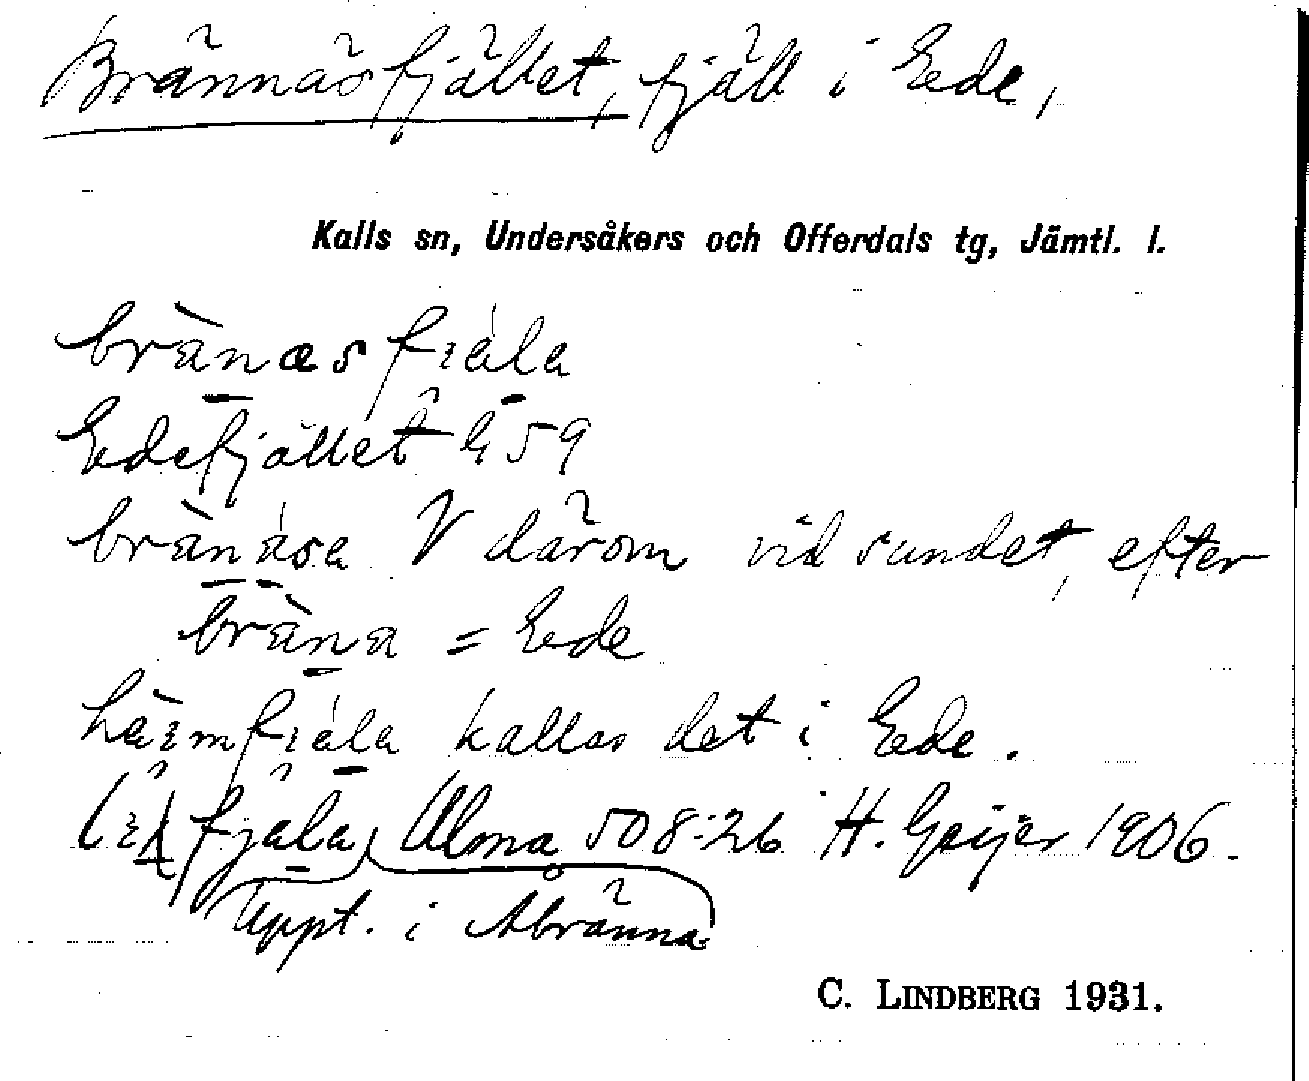 Brännåsfjället, fjäll i Ede,
Kalls sn, Undersåkers och Offerdals tg, Jämtl. l.
brä̀nasfiála
Edefjället G 59
brä̀nása V därom vid sundet, efter
brä̀na = Ede
häimfiála kallas det i Ede.
fjäla, Ulma 508:26 H. Geijer 1906.
Uppt. i Åbränna
C. LINDBERG 1931.